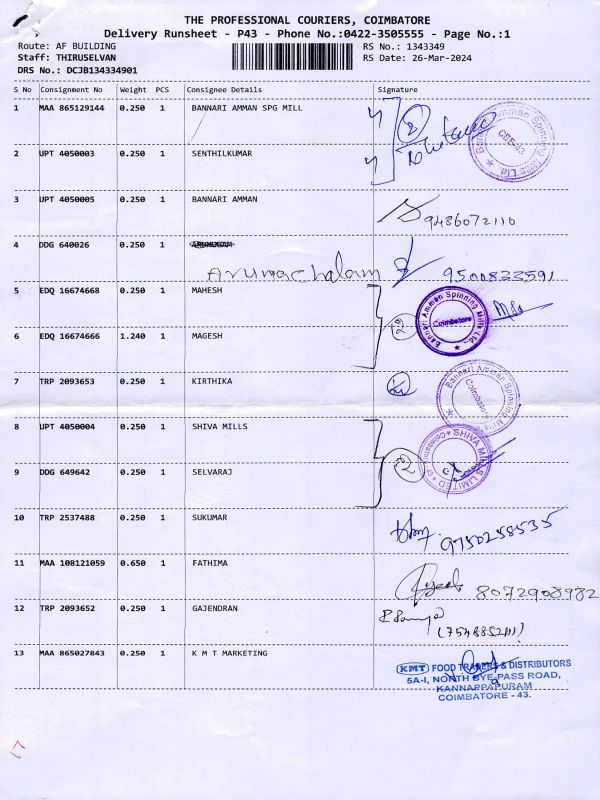 THE PROFESSIONAL COURIERS, COIMBATORE
Delivery Runsheet - P43 - Phone No.:0422-3505555 - Page No.:1
Route: AF BUILDING RS No.: 1343349
Staff: THIRUSELVAN RS Date: 26-Mar-2024
DRS No.: DCJB134334901
S No Consignment No Weight PCS Consignee Details Signature
1 MAA 865129144 0.250 1 BANNARI AMMAN SPG MILL
Bannari Amman Spinning Mills Ltd.
CBE-43
2 UPT 4050003 0.250 1 SENTHILKUMAR
3 UPT 4050005 0.250 1 BANNARI AMMAN
9486072110
4 DDG 640026 0.250 1
Arumachalam 9500833591
5 EDQ 16674668 0.250 1 MAHESH
Bannari Amman Spinning Mills Ltd.,
Coimbatore
6 EDQ 16674666 1.240 1 MAGESH
7 TRP 2093653 0.250 1 KIRTHIKA
Bannari Amman Spinning Mills
Coimbatore
8 UPT 4050004 0.250 1 SHIVA MILLS
SHIVA MILLS LIMITED
9 DDG 649642 0.250 1 SELVARAJ
10 TRP 2537488 0.250 1 SUKUMAR
9750258535
11 MAA 108121059 0.650 1 FATHIMA
8072908982
12 TRP 2093652 0.250 1 GAJENDRAN
13 MAA 865027843 0.250 1 K M T MARKETING
KMT FOOD TRADERS & DISTRIBUTORS
5A-I, NORTH BYE-PASS ROAD,
KANNAPPAPURAM
COIMBATORE - 43.
17